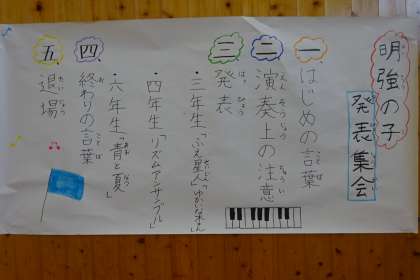 明強の子
発表集会
一 はじめの言葉
二 演奏上の注意
三 発表
・三年生「ふえ星人」「ゆかいな木きん」
・四年生「リズムアンサンブル」
・六年生「青と夏」
四 終わりの言葉
五 退場